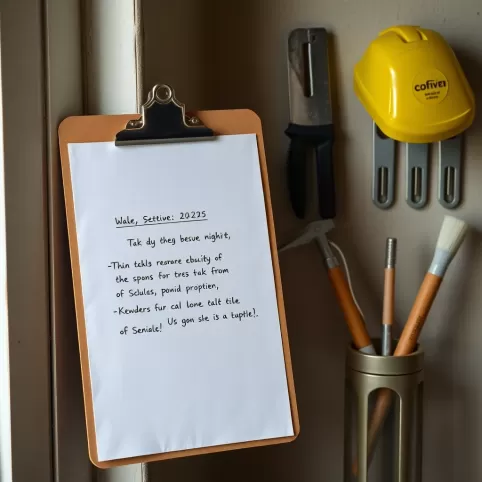 Wale, Settive: 2023S
Tak dy theg besue nighit,
-Thin tekls rearare ebuity of
the spons for tres tak from
of Sclules, ponid proptien,
-Kewders fur cal lone talt tile
of Seniale! Us gon sle is a taptle!.
cofives